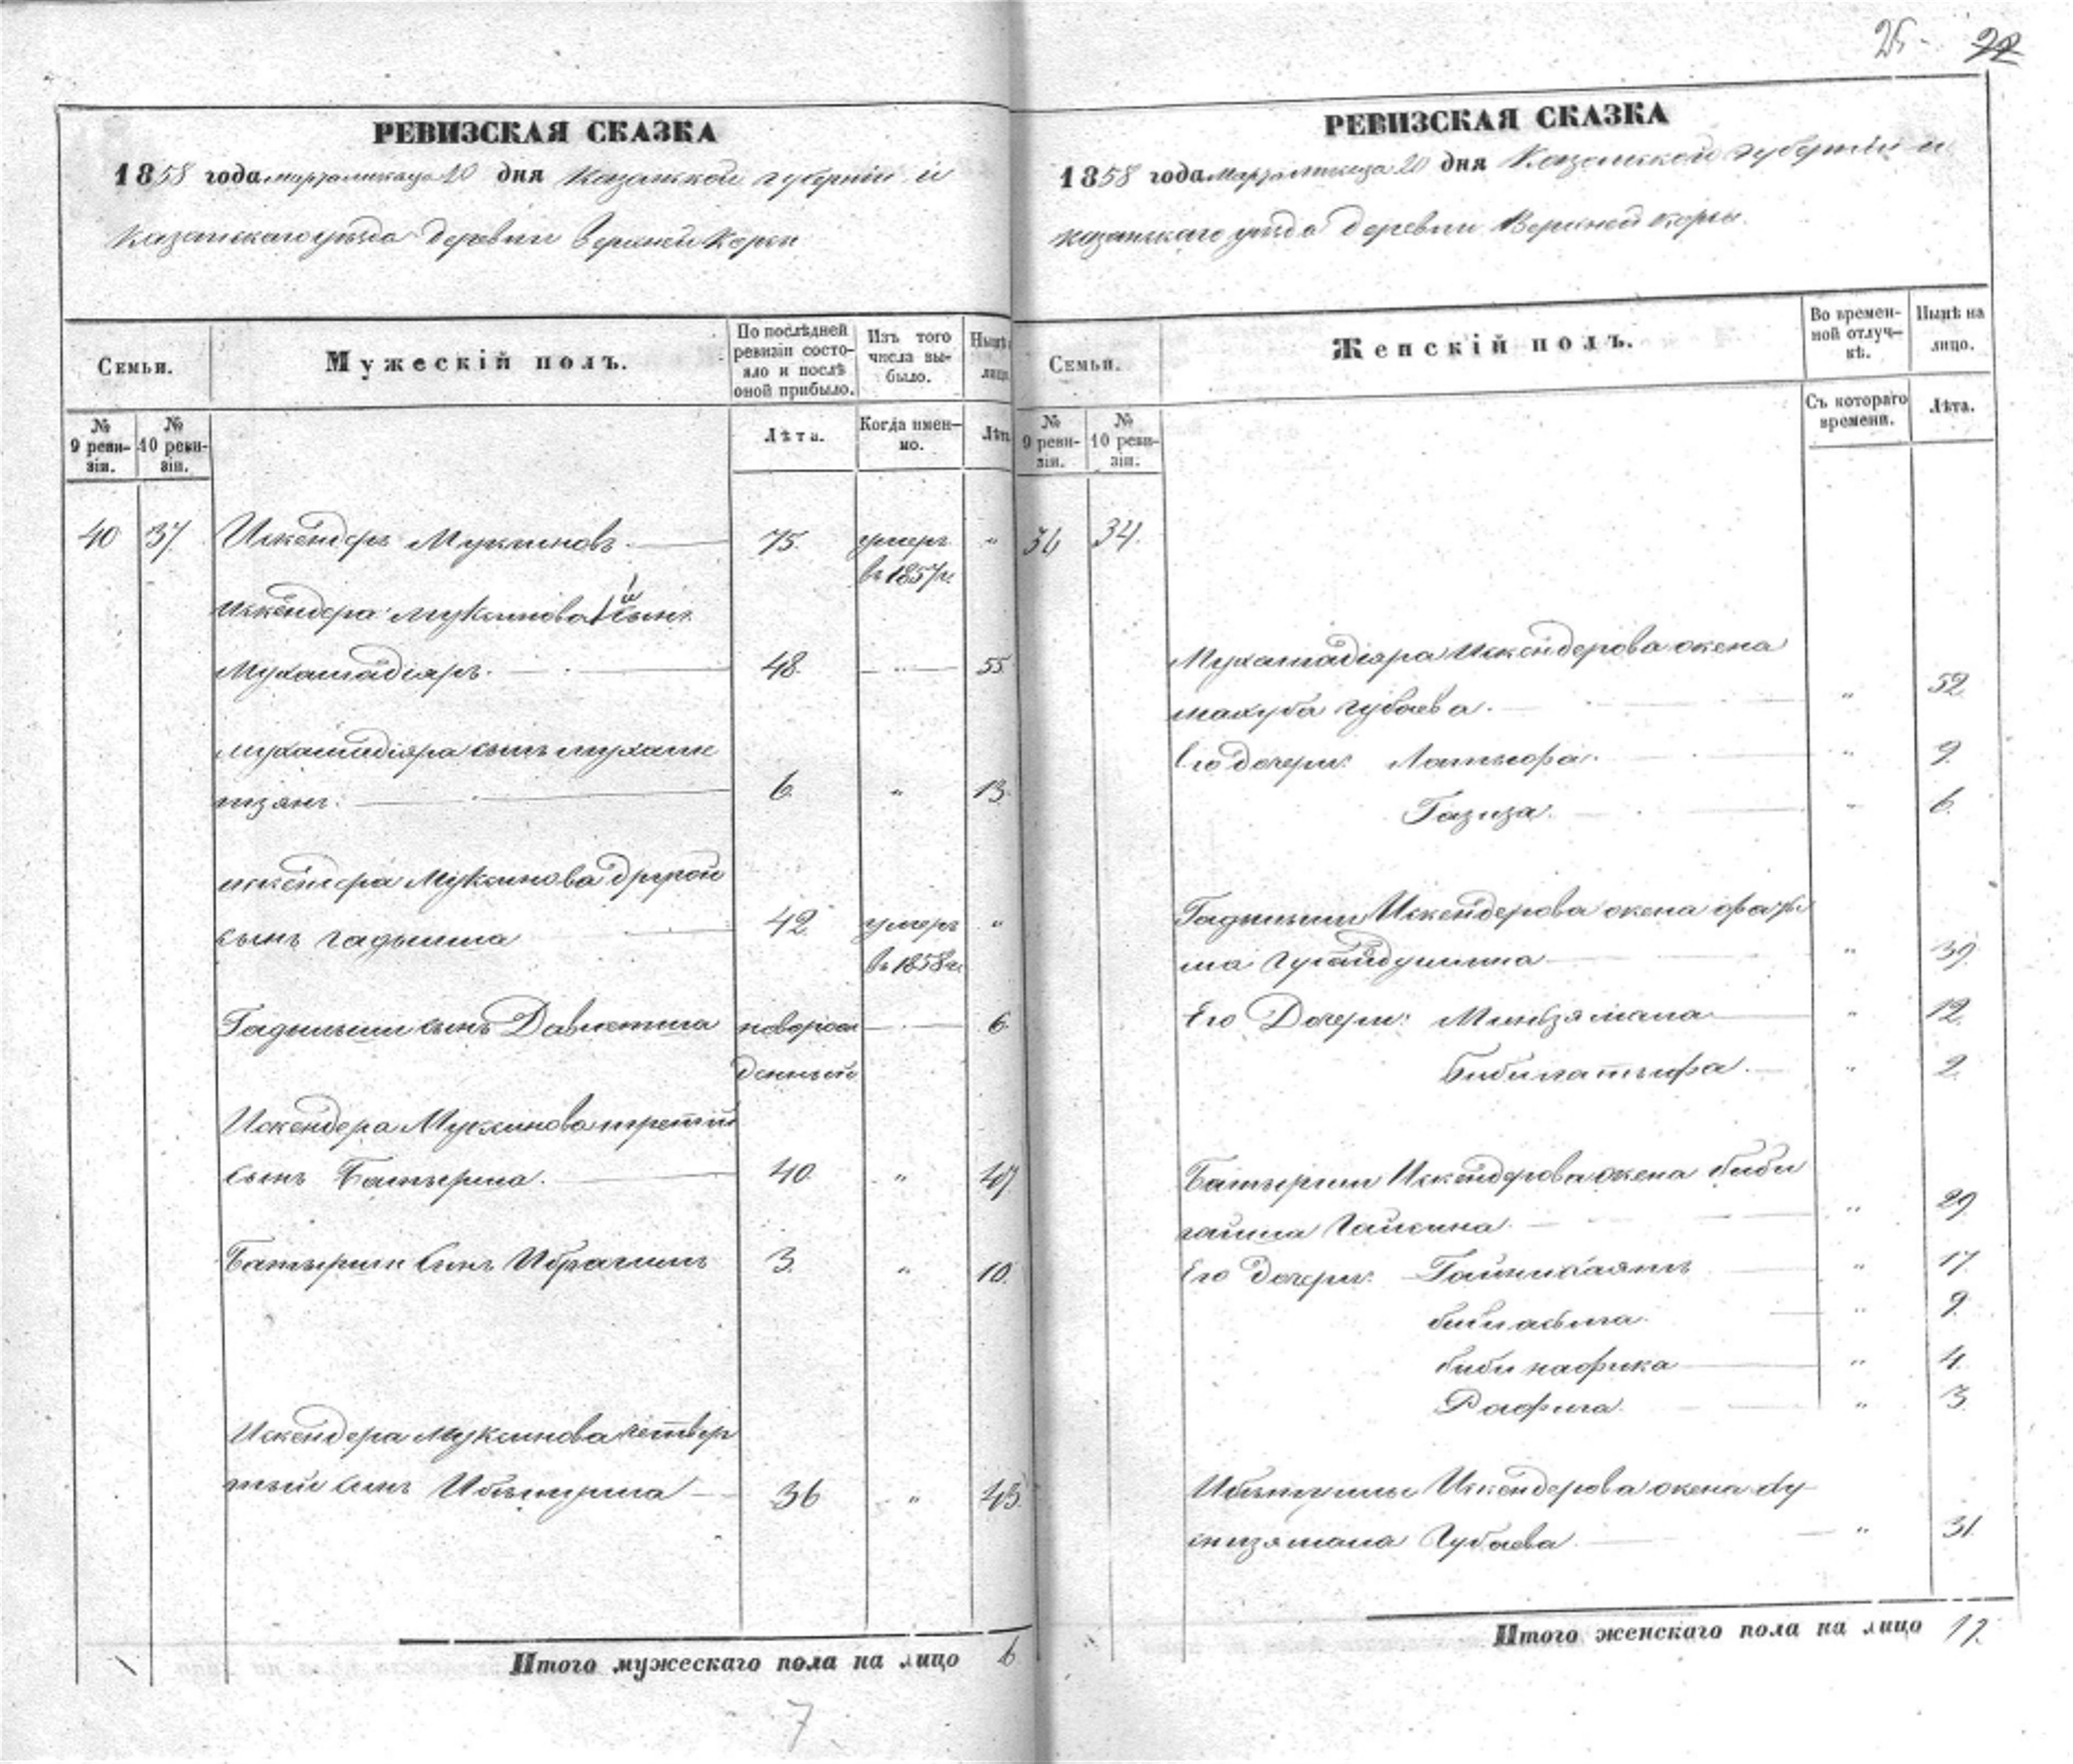 25. 22
РЕВИЗСКАЯ СКАЗКА
1858 года марта месяца 20 дня Казанской губернии и
Казанского уезда деревни Верхней Корсы
Семьи.
Мужескій полъ.
По послѣдней ревизіи состояло и послѣ оной прибыло.
Изъ того числа выбыло.
Нынѣ лицо
№ 9 ревизіи.
№ 10 ревизіи.
Лѣта.
Когда именно.
Лѣта
40 37 Искендеръ Муксиновъ 75. умеръ въ 1857 г. "
Искендера Муксинова 1й сынъ
Мухамадіяръ 48. " 55
Мухамадіяра сынъ Мухаме
тзянъ. 6. " 13.
Искендера Муксинова другой
сынъ Гадыльша 42. умеръ въ 1858 г. "
Гадыльши сынъ Давлетша новорожденный 6
Искендера Муксинова третій
сынъ Батырша. 40. " 47
Батырши сынъ Ибрагимъ 3. " 10.
Искендера Муксинова четвер
тый сынъ 36 " 43.
Итого мужескаго пола на лицо 6
7
РЕВИЗСКАЯ СКАЗКА
1858 года марта месяца 20 дня Казанской губерніи и
Казанскаго уезда деревни Верхней Корсы.
Семьи.
Женскій полъ.
Во временной отлучкѣ.
Нынѣ на лицо.
№ 9 ревизіи.
№ 10 ревизіи.
Съ котораго времени.
Лѣта.
36 34.
Мухамадіяра Искендерова жена
Махуба Губаева. " 52
Его дочери: Латыфа. " 9.
Газиза. " 6.
Гадыльши Искендерова жена Фать
ма " 39.
Его Дочери: Минзямала " 12.
Бибилатыфа. " 2.
Батырши Искендерова жена Биби
" 29
Его дочери: " 17.
" 9.
Биби нафика " 4.
Рафига. " 3.
Искендерова жена Ху
снизямала Губаева " 31.
Итого женскаго пола на лицо 12.